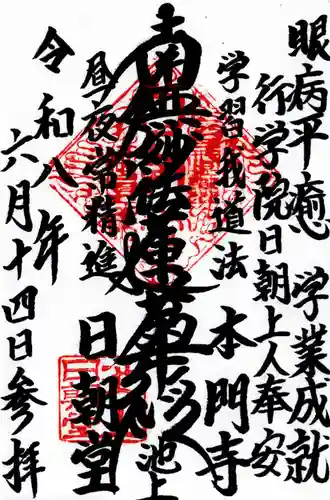 眼病平癒 学業成就
行学院日朝上人奉安
学習我道法
本門寺
南無妙法蓮華経
池上
昼夜常精進
日朝堂
令和八年
六月十四日参拝